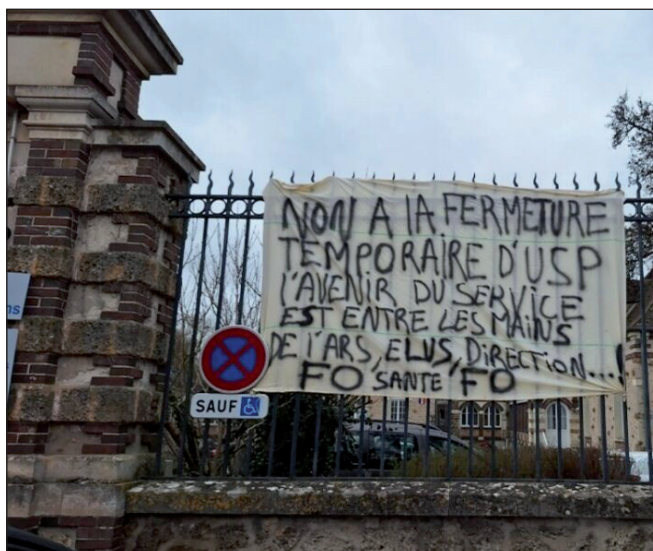 NON A LA FERMETURE
TEMPORAIRE D'USP
L'AVENIR DU SERVICE
EST ENTRE LES MAINS
DE L'ARS, ELUS, DIRECTION...!
FO SANTE FO
SAUF